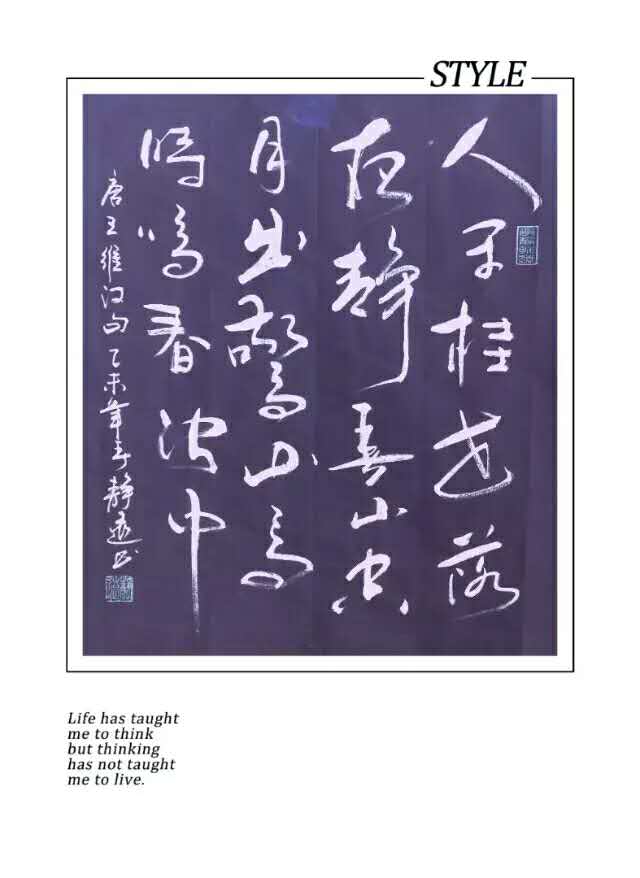 STYLE
人閒桂花落
夜静春山空
月出驚山鳥
時鳴春澗中
唐王維詩句乙未年于静遠書
Life has taught
me to think
but thinking
has not taught
me to live.